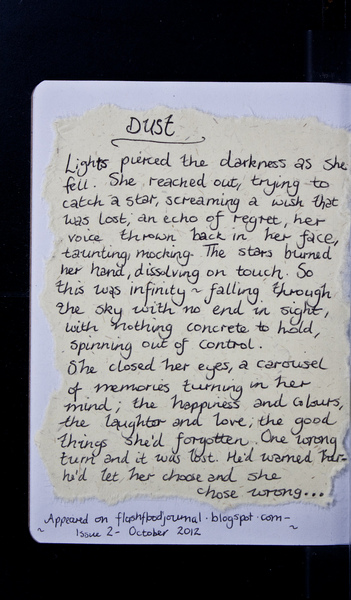 Dust
Lights pierced the darkness as she
fell. She reached out, trying to
catch a star, screaming a wish that
was lost, an echo of regret, her
voice thrown back in her face,
taunting, mocking. The stars burned
her hand, dissolving on touch. So
this was infinity ~ falling through
the sky with no end in sight,
with nothing concrete to hold,
spinning out of control.
She closed her eyes, a carousel
of memories turning in her
mind; the happiness and colours,
the laughter and love; the good
things she'd forgotten. One wrong
turn and it was lost. He'd warned her-
he'd let her choose and she
chose wrong...
Appeared on flashfloodjournal.blogspot.com-
~ Issue 2- October 2012 ~